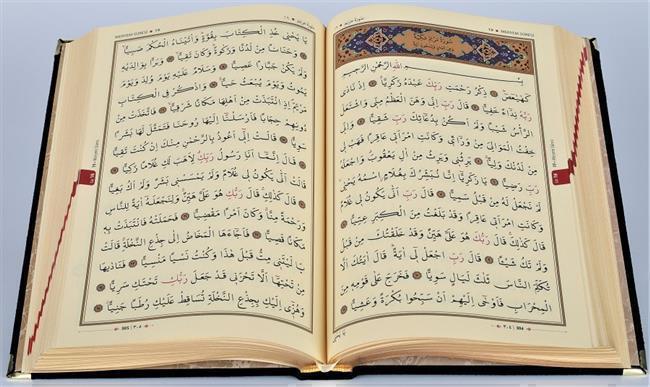 ١٩ MERYEM SÛRESİ
سُورَةُ مَرْيَمَ
بِسْمِ اللّٰهِ الرَّحْمٰنِ الرَّحِيمِ
كٓهٰيٰعٓصٓ ذِكْرُ رَحْمَتِ رَبِّكَ عَبْدَهُ زَكَرِيَّا اِذْ نَادٰى
رَبَّهُ نِدَاءً خَفِيًّا قَالَ رَبِّ اِنِّي وَهَنَ الْعَظْمُ مِنِّي وَاشْتَعَلَ
الرَّأْسُ شَيْبًا وَلَمْ اَكُنْ بِدُعَائِكَ رَبِّ شَقِيًّا وَاِنِّي
خِفْتُ الْمَوَالِيَ مِنْ وَرَاءِي وَكَانَتِ امْرَاَتِي عَاقِرًا فَهَبْ لِي
مِنْ لَدُنْكَ وَلِيًّا يَرِثُنِي وَيَرِثُ مِنْ اٰلِ يَعْقُوبَ وَاجْعَلْهُ
رَبِّ رَضِيًّا يَا زَكَرِيَّا اِنَّا نُبَشِّرُكَ بِغُلَامٍ اسْمُهُ يَحْيٰى
لَمْ نَجْعَلْ لَهُ مِنْ قَبْلُ سَمِيًّا قَالَ رَبِّ اَنّٰى يَكُونُ لِي غُلَامٌ
وَكَانَتِ امْرَاَتِي عَاقِرًا وَقَدْ بَلَغْتُ مِنَ الْكِبَرِ عِتِيًّا
قَالَ كَذٰلِكَ قَالَ رَبُّكَ هُوَ عَلَيَّ هَيِّنٌ وَقَدْ خَلَقْتُكَ مِنْ قَبْلُ
وَلَمْ تَكُ شَيْئًا قَالَ رَبِّ اجْعَلْ لِي اٰيَةً قَالَ اٰيَتُكَ اَلَّا
تُكَلِّمَ النَّاسَ ثَلٰثَ لَيَالٍ سَوِيًّا فَخَرَجَ عَلٰى قَوْمِهِ مِنَ
الْمِحْرَابِ فَاَوْحٰى اِلَيْهِمْ اَنْ سَبِّحُوا بُكْرَةً وَعَشِيًّا
٣٠٤ 304
MERYEM SÛRESİ ١٩
يَا يَحْيٰى خُذِ الْكِتَابَ بِقُوَّةٍ وَاٰتَيْنَاهُ الْحُكْمَ صَبِيًّا
وَحَنَانًا مِنْ لَدُنَّا وَزَكٰوةً وَكَانَ تَقِيًّا وَبَرًّا بِوَالِدَيْهِ
وَلَمْ يَكُنْ جَبَّارًا عَصِيًّا وَسَلَامٌ عَلَيْهِ يَوْمَ وُلِدَ وَيَوْمَ
يَمُوتُ وَيَوْمَ يُبْعَثُ حَيًّا وَاذْكُرْ فِي الْكِتَابِ
مَرْيَمَ اِذِ انْتَبَذَتْ مِنْ اَهْلِهَا مَكَانًا شَرْقِيًّا فَاتَّخَذَتْ مِنْ
دُونِهِمْ حِجَابًا فَاَرْسَلْنَا اِلَيْهَا رُوحَنَا فَتَمَثَّلَ لَهَا بَشَرًا
سَوِيًّا قَالَتْ اِنِّي اَعُوذُ بِالرَّحْمٰنِ مِنْكَ اِنْ كُنْتَ تَقِيًّا
قَالَ اِنَّمَا اَنَا رَسُولُ رَبِّكِ لِاَهَبَ لَكِ غُلَامًا زَكِيًّا
قَالَتْ اَنّٰى يَكُونُ لِي غُلَامٌ وَلَمْ يَمْسَسْنِي بَشَرٌ وَلَمْ اَكُ بَغِيًّا
قَالَ كَذٰلِكِ قَالَ رَبُّكِ هُوَ عَلَيَّ هَيِّنٌ وَلِنَجْعَلَهُ اٰيَةً لِلنَّاسِ
وَرَحْمَةً مِنَّا وَكَانَ اَمْرًا مَقْضِيًّا فَحَمَلَتْهُ فَانْتَبَذَتْ بِهِ
مَكَانًا قَصِيًّا فَاَجَاءَهَا الْمَخَاضُ اِلٰى جِذْعِ النَّخْلَةِ قَالَتْ
يَا لَيْتَنِي مِتُّ قَبْلَ هٰذَا وَكُنْتُ نَسْيًا مَنْسِيًّا فَنَادٰيهَا
مِنْ تَحْتِهَا اَلَّا تَحْزَنِي قَدْ جَعَلَ رَبُّكِ تَحْتَكِ سَرِيًّا
وَهُزِّي اِلَيْكِ بِجِذْعِ النَّخْلَةِ تُسَاقِطْ عَلَيْكِ رُطَبًا جَنِيًّا
305 ٣٠٥